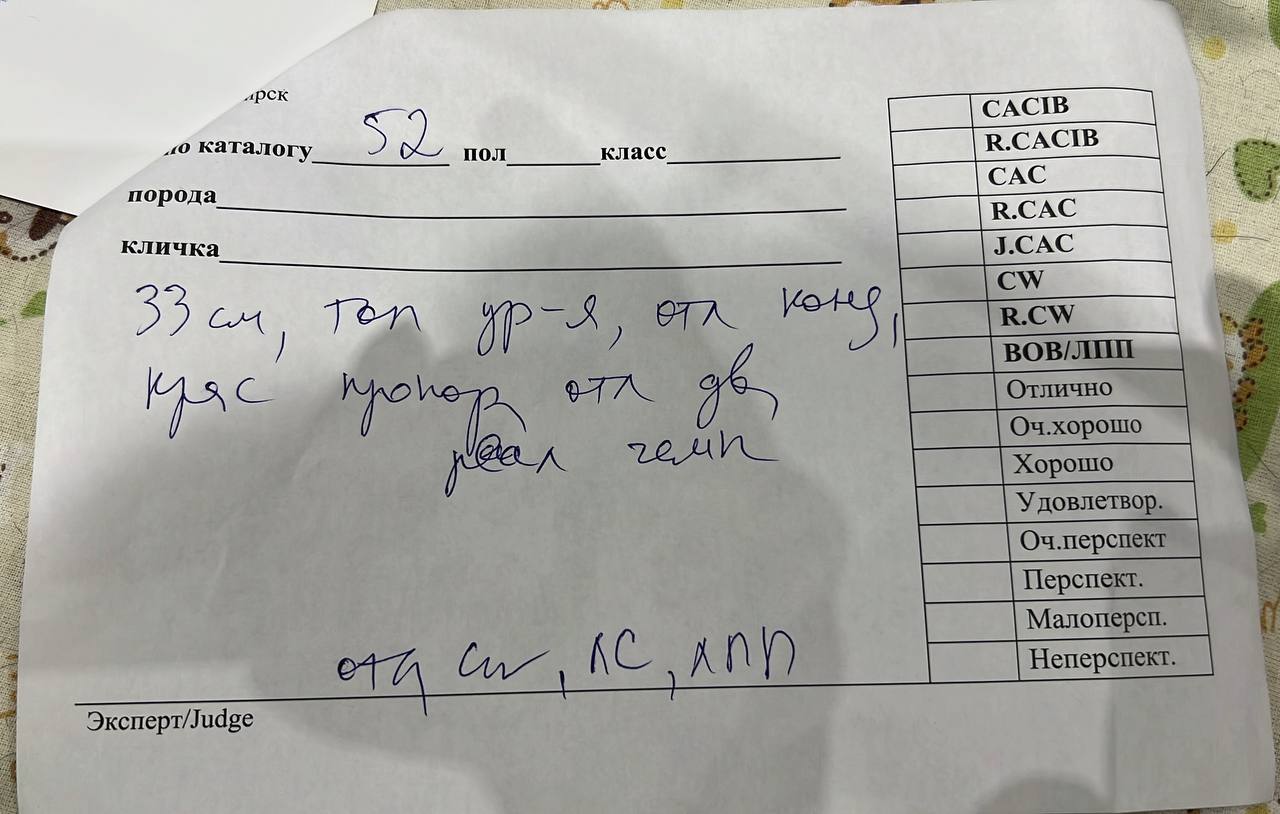 ирск
по каталогу 52 пол класс
порода
кличка
33 см, топ ур-я, отл конд,
крас пропор отл дв,
реал чемп
отл CW, ЛС, ЛПП
Эксперт/Judge
CACIB
R.CACIB
CAC
R.CAC
J.CAC
CW
R.CW
BOB/ЛПП
Отлично
Оч.хорошо
Хорошо
Удовлетвор.
Оч.перспект
Перспект.
Малоперсп.
Неперспект.